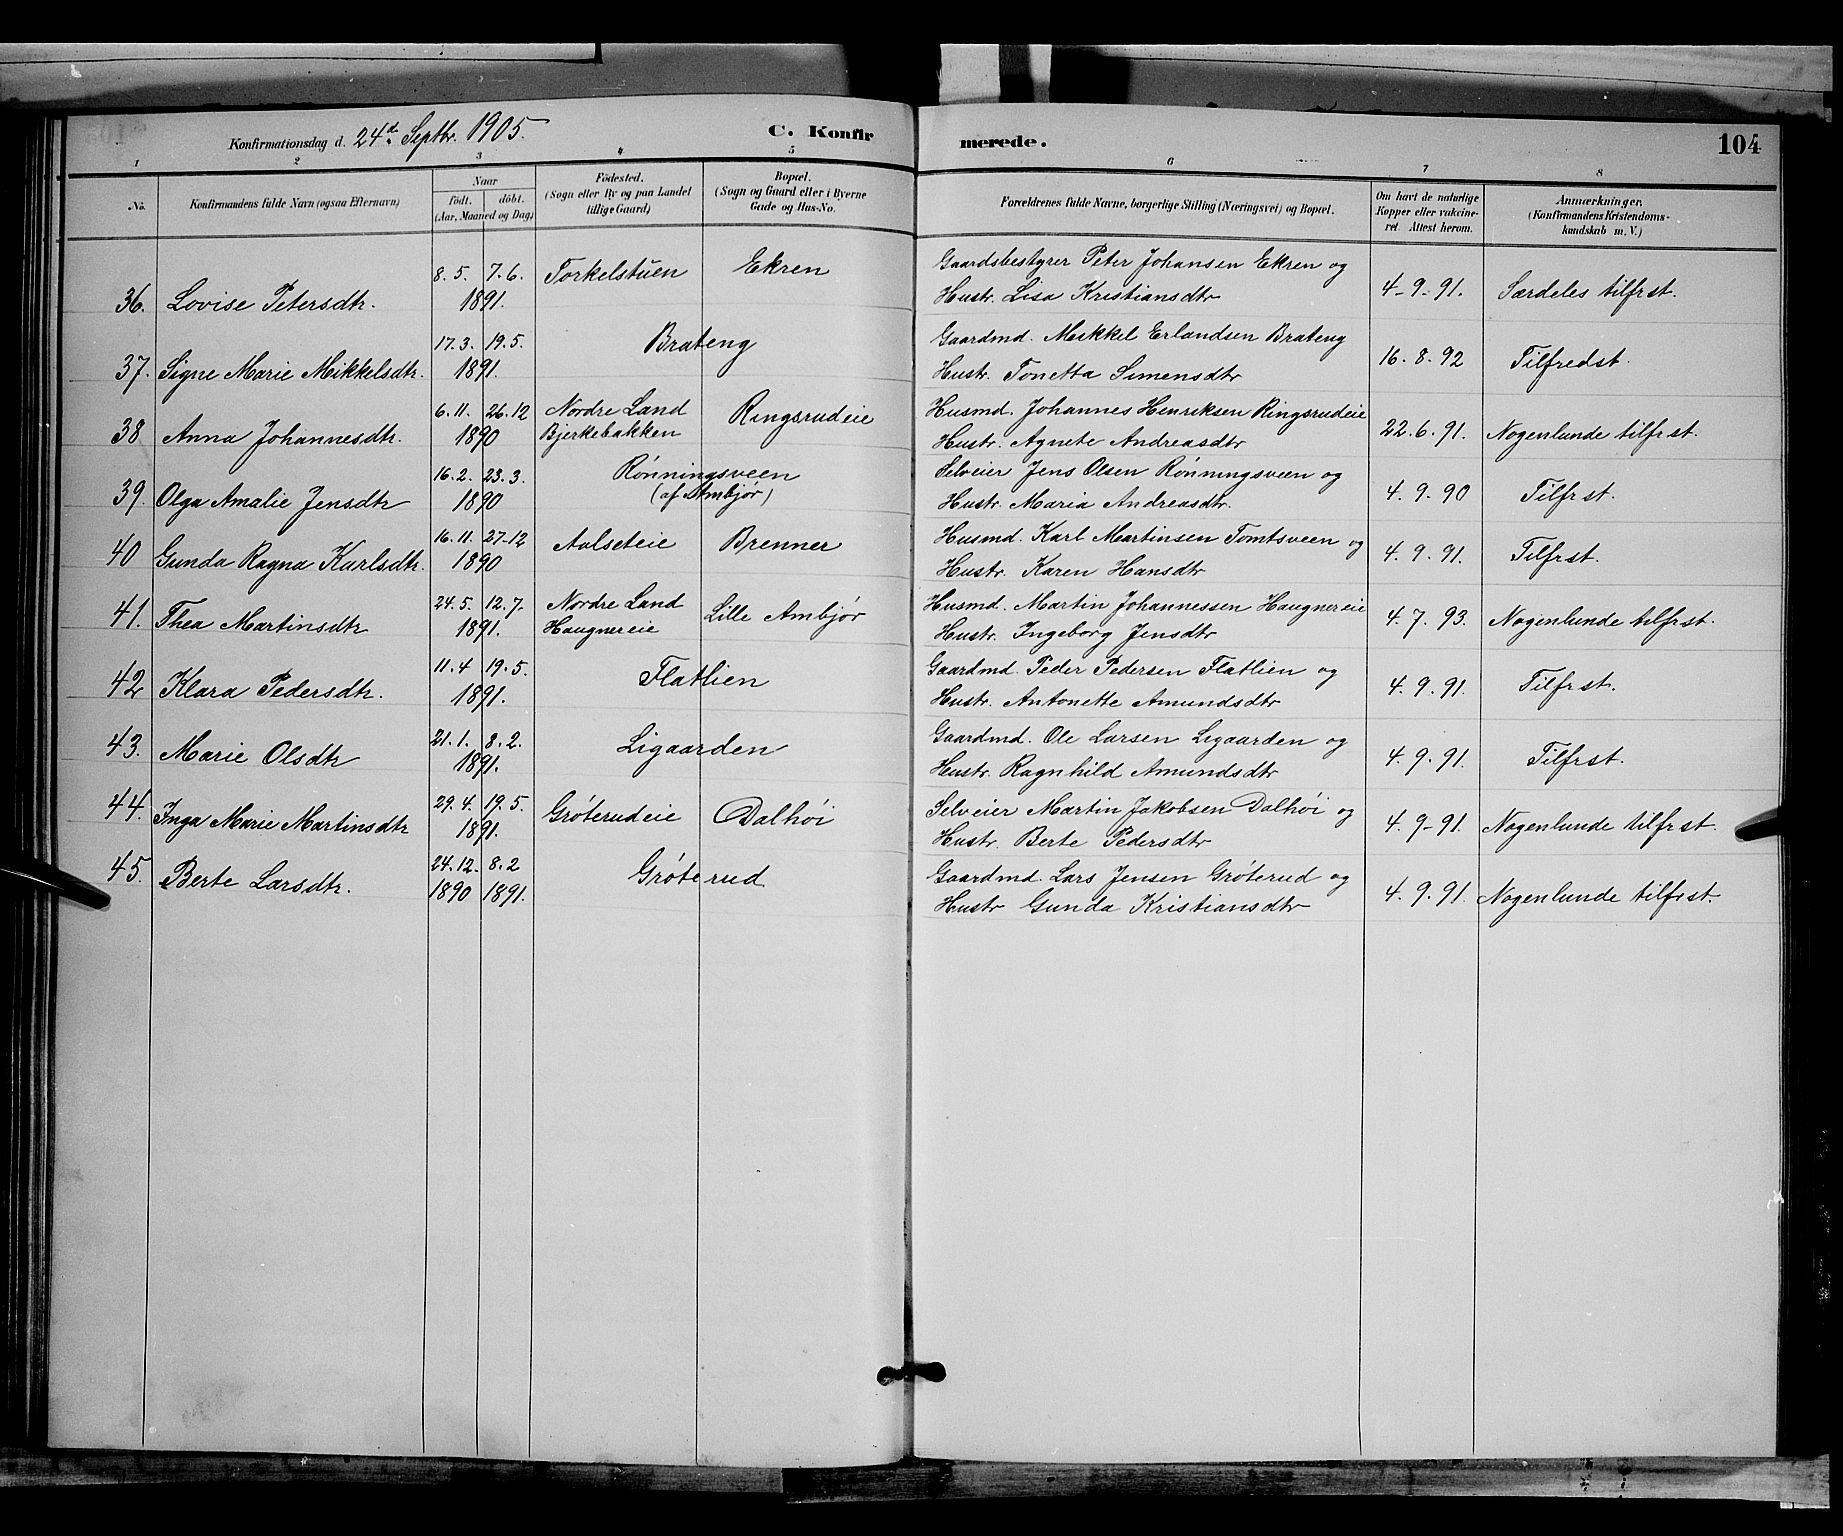 Konfirmationsdag d. 24d Septbr. 1905.
C. Konfirmerede.
104
1 2 3 4 5 6 7 8
No. | Konfirmandens fulde Navn (ogsaa Efternavn) | Naar født. døbt. (Aar, Maaned og Dag) | Fødested. (Sogn eller By og paa Landet tillige Gaard) | Bopæl. (Sogn og Gaard eller i Byerne Gade og Hus-No. | Forældrenes fulde Navne, borgerlige Stilling (Næringsvei) og Bopæl. | Om havt de naturlige Kopper eller vaccineret. Attest herom. | Anmærkninger. (Konfirmandens Kristendomskundskab m. V.)
36. Lovise Petersdtr. | 8.5. 7.6. 1891. | Torkelstuen | Ekren | Gaardsbestyrer Peter Johansen Ekren og
Hustr. Lisa Kristiansdtr | 4-9-91. | Særdeles tilfrst.
37. Signe Marie Mikkelsdtr. | 17.3. 19.5. 1891. | Brateng | Gaardmd. Mikkel Erlandsen Brateng
Hustr. Tonetta Simensdtr | 16.8.92 | Tilfredst.
38 Anna Johannesdtr. | 6.11. 26.12 1890 | Nordre Land Bjerkebakken | Ringsrudeie | Husmd. Johannes Henriksen Ringsrudeie
Hustr. Agnete Andreasdtr | 22.6.91. | Nogenlunde tilfrst.
39. Olga Amalie Jensdtr | 16.2. 23.3. 1890 | Rønningsveen (af Ambjør) | Selveier Jens Olsen Rønningsveen og
Hustr. Maria Andreasdtr. | 4.9.90 | Tilfrst.
40 Gunda Ragna Karlsdtr. | 16.11. 27-12 1890 | Aalseteie | Brenner | Husmd. Karl Martinsen Tomtsveen og
Hustr. Karen Hansdtr | 4.9.91. | Tilfrst.
41. Thea Martinsdtr | 24.5. 12.7. 1891. | Nordre Land Haugnereie | Lille Ambjør | Husmd. Martin Johannessen Haugnereie
Hustr. Ingeborg Jensdtr | 4.7.93. | Nogenlunde tilfrst.
42 Klara Pedersdtr. | 11.4 19.5. 1891. | Flatlien | Gaardmd. Peder Pedersen Flatlien og
Hustr. Antonette Amundsdtr | 4.9.91. | Tilfrst.
43. Marie Olsdtr | 21.1. 8.2. 1891. | Ligaarden | Gaardmd. Ole Larsen Ligaarden og
Hustr. Ragnhild Amundsdtr | 4.9.91. | Tilfrst.
44. Inga Marie Martinsdtr | 29.4. 19.5. 1891. | Grøterudeie | Dalhøi | Selveier Martin Jakobsen Dalhøi og
Hustr. Berte Pedersdtr | 4.9-91. | Nogenlunde tilfrst.
45. Berte Larsdtr. | 24.12. 8.2 1890 1891. | Grøterud | Gaardmd. Lars Jensen Grøterud og
Hustr Gunda Kristiansdtr | 4.9.91. | Nogenlunde tilfrst.